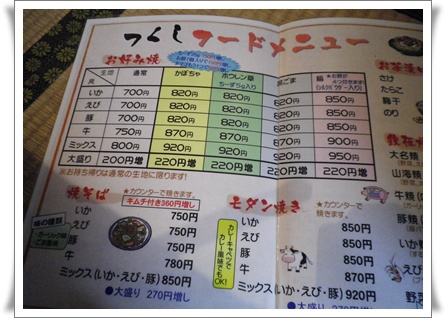 つくしフードメニュー
お好み焼
生地 通常 かぼちゃ ホウレン草 黒ごま
いか 700円 820円 820円 820円 850円
えび 700円 820円 820円 820円 850円
豚 700円 820円 820円 820円 850円
牛 750円 870円 870円 870円 900円
ミックス 800円 920円 920円 920円 950円
大盛り 200円増 220円増 220円増 220円増 220円増
※お持ち帰りは通常の生地に限ります!
お茶漬け
さけ
たらこ
梅干
のり
大名焼
山海焼
焼そば
★カウンターで焼きます。
キムチ付き360円増し
味の種類
いか 750円
えび 750円
豚 750円
牛 780円
ミックス(いか・えび・豚)850円
●大盛り 270円増し
モダン焼き
★カウンターで焼きます。
カレーキャベツでカレー風味でもOK!
いか 850円
えび 850円
豚 850円
牛 870円
ミックス(いか・えび・豚)920円
●大盛り 270円増し